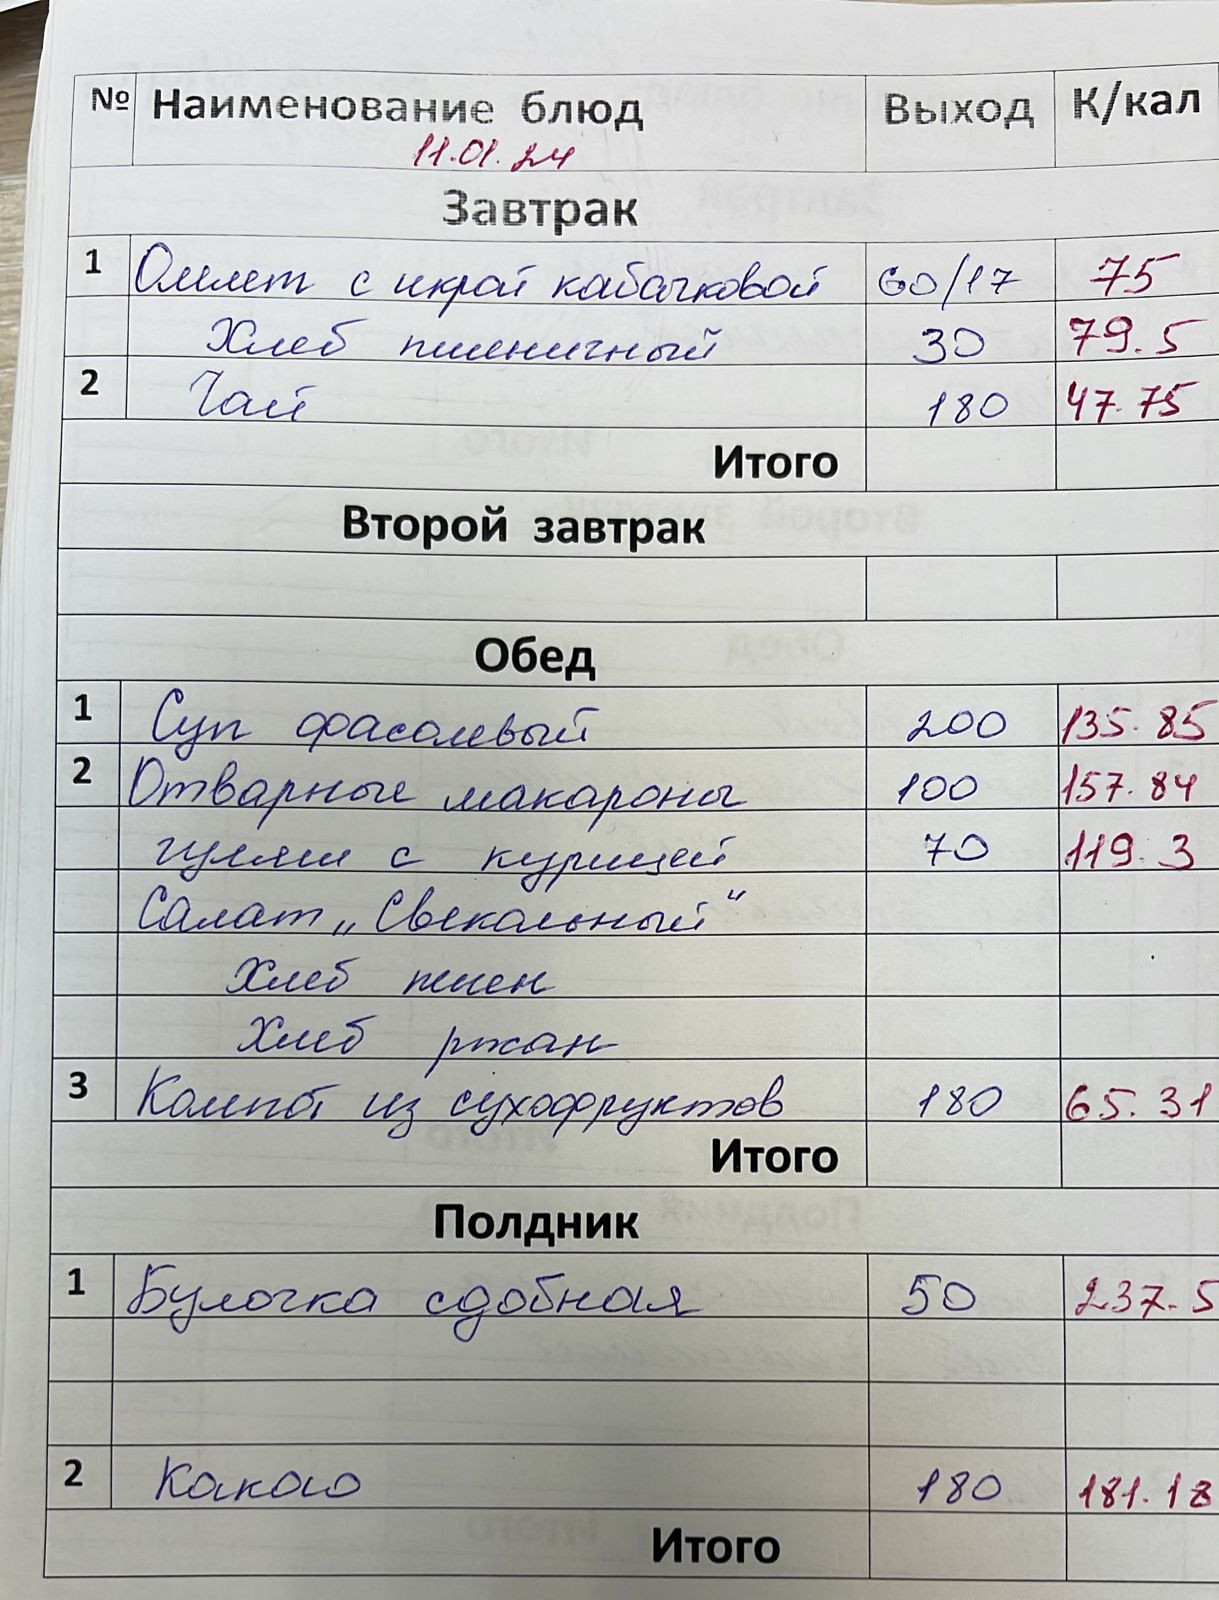 № Наименование блюд Выход К/кал
11.01.24
Завтрак
1 Омлет с икрой кабачковой 60/17 75
Хлеб пшеничный 30 79.5
2 Чай 180 47.75
Итого
Второй завтрак
Обед
1 Суп фасолевый 200 135.85
2 Отварные макароны 100 157.84
гуляш с курицей 70 119.3
Салат „Свекольный“
Хлеб пшен
Хлеб ржан
3 Компот из сухофруктов 180 65.31
Итого
Полдник
1 Булочка сдобная 50 237.5
2 Какао 180 181.18
Итого